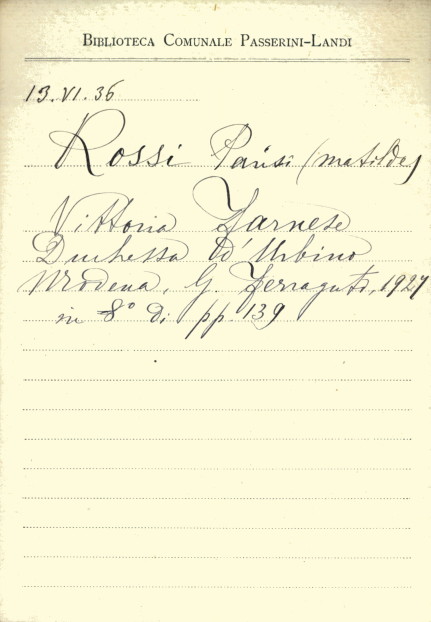 BIBLIOTECA COMUNALE PASSERINI-LANDI
13.VI.36
Rossi Parisi (Matilde)
Vittoria Farnese
Duchessa d'Urbino
Modena, G. Ferraguti, 1927
in 8º di pp. 139